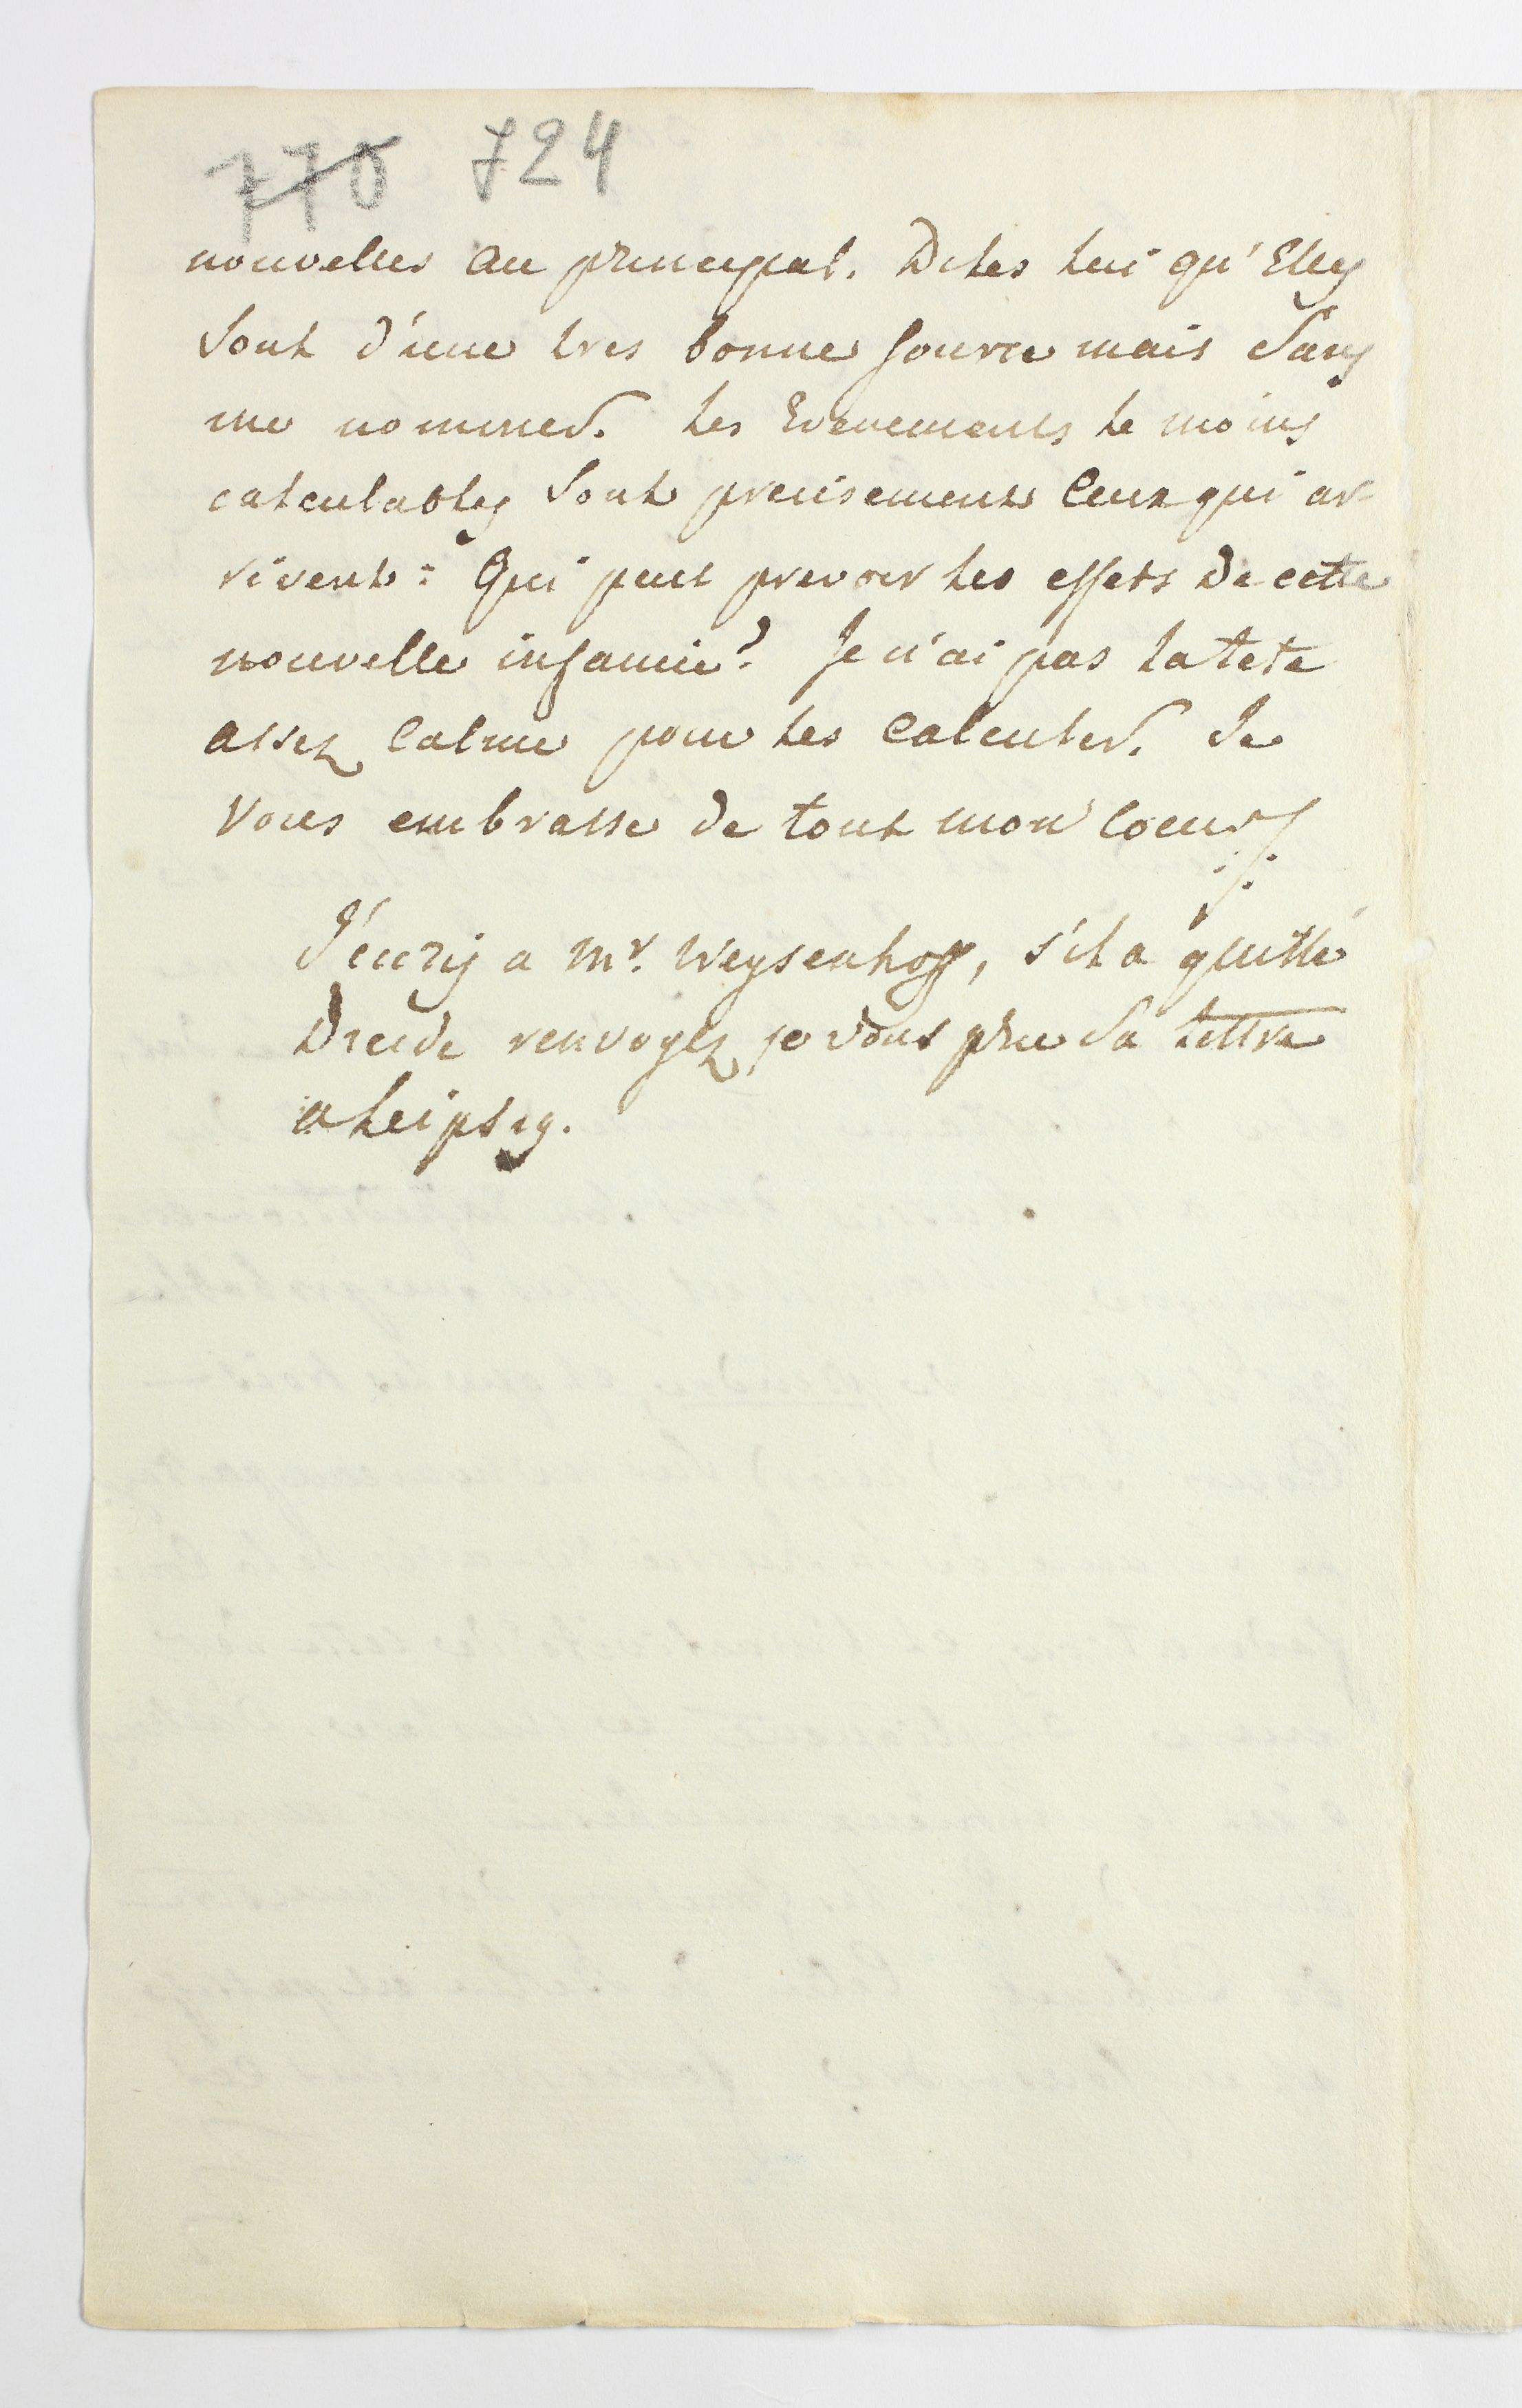 770 724
nouvelles au principal. Dites lui qu'Elles
sont d'une tres bonne source mais sans
me nommer. Les Evenements le moins
calculables sont precisement ceux qui ar-
rivent: Qui peut prevoir les effets de cette
nouvelle infamie? Je n'ai pas la tete
assez calme pour les calculer. Je
vous embrasse de tout mon coeur
J'ecris a Mr. Weysenhoff, s'il a quitté
Dresde renvoyez je vous prie sa lettre
a Leipsig.